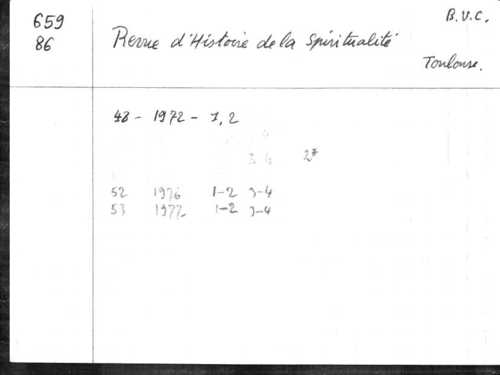 659
86
B.V.C.
Revue d'Histoire de la Spiritualité
Toulouse.
48 - 1972 - 1, 2
3-4 2*
52 1976 1-2 3-4
53 1977 1-2 3-4